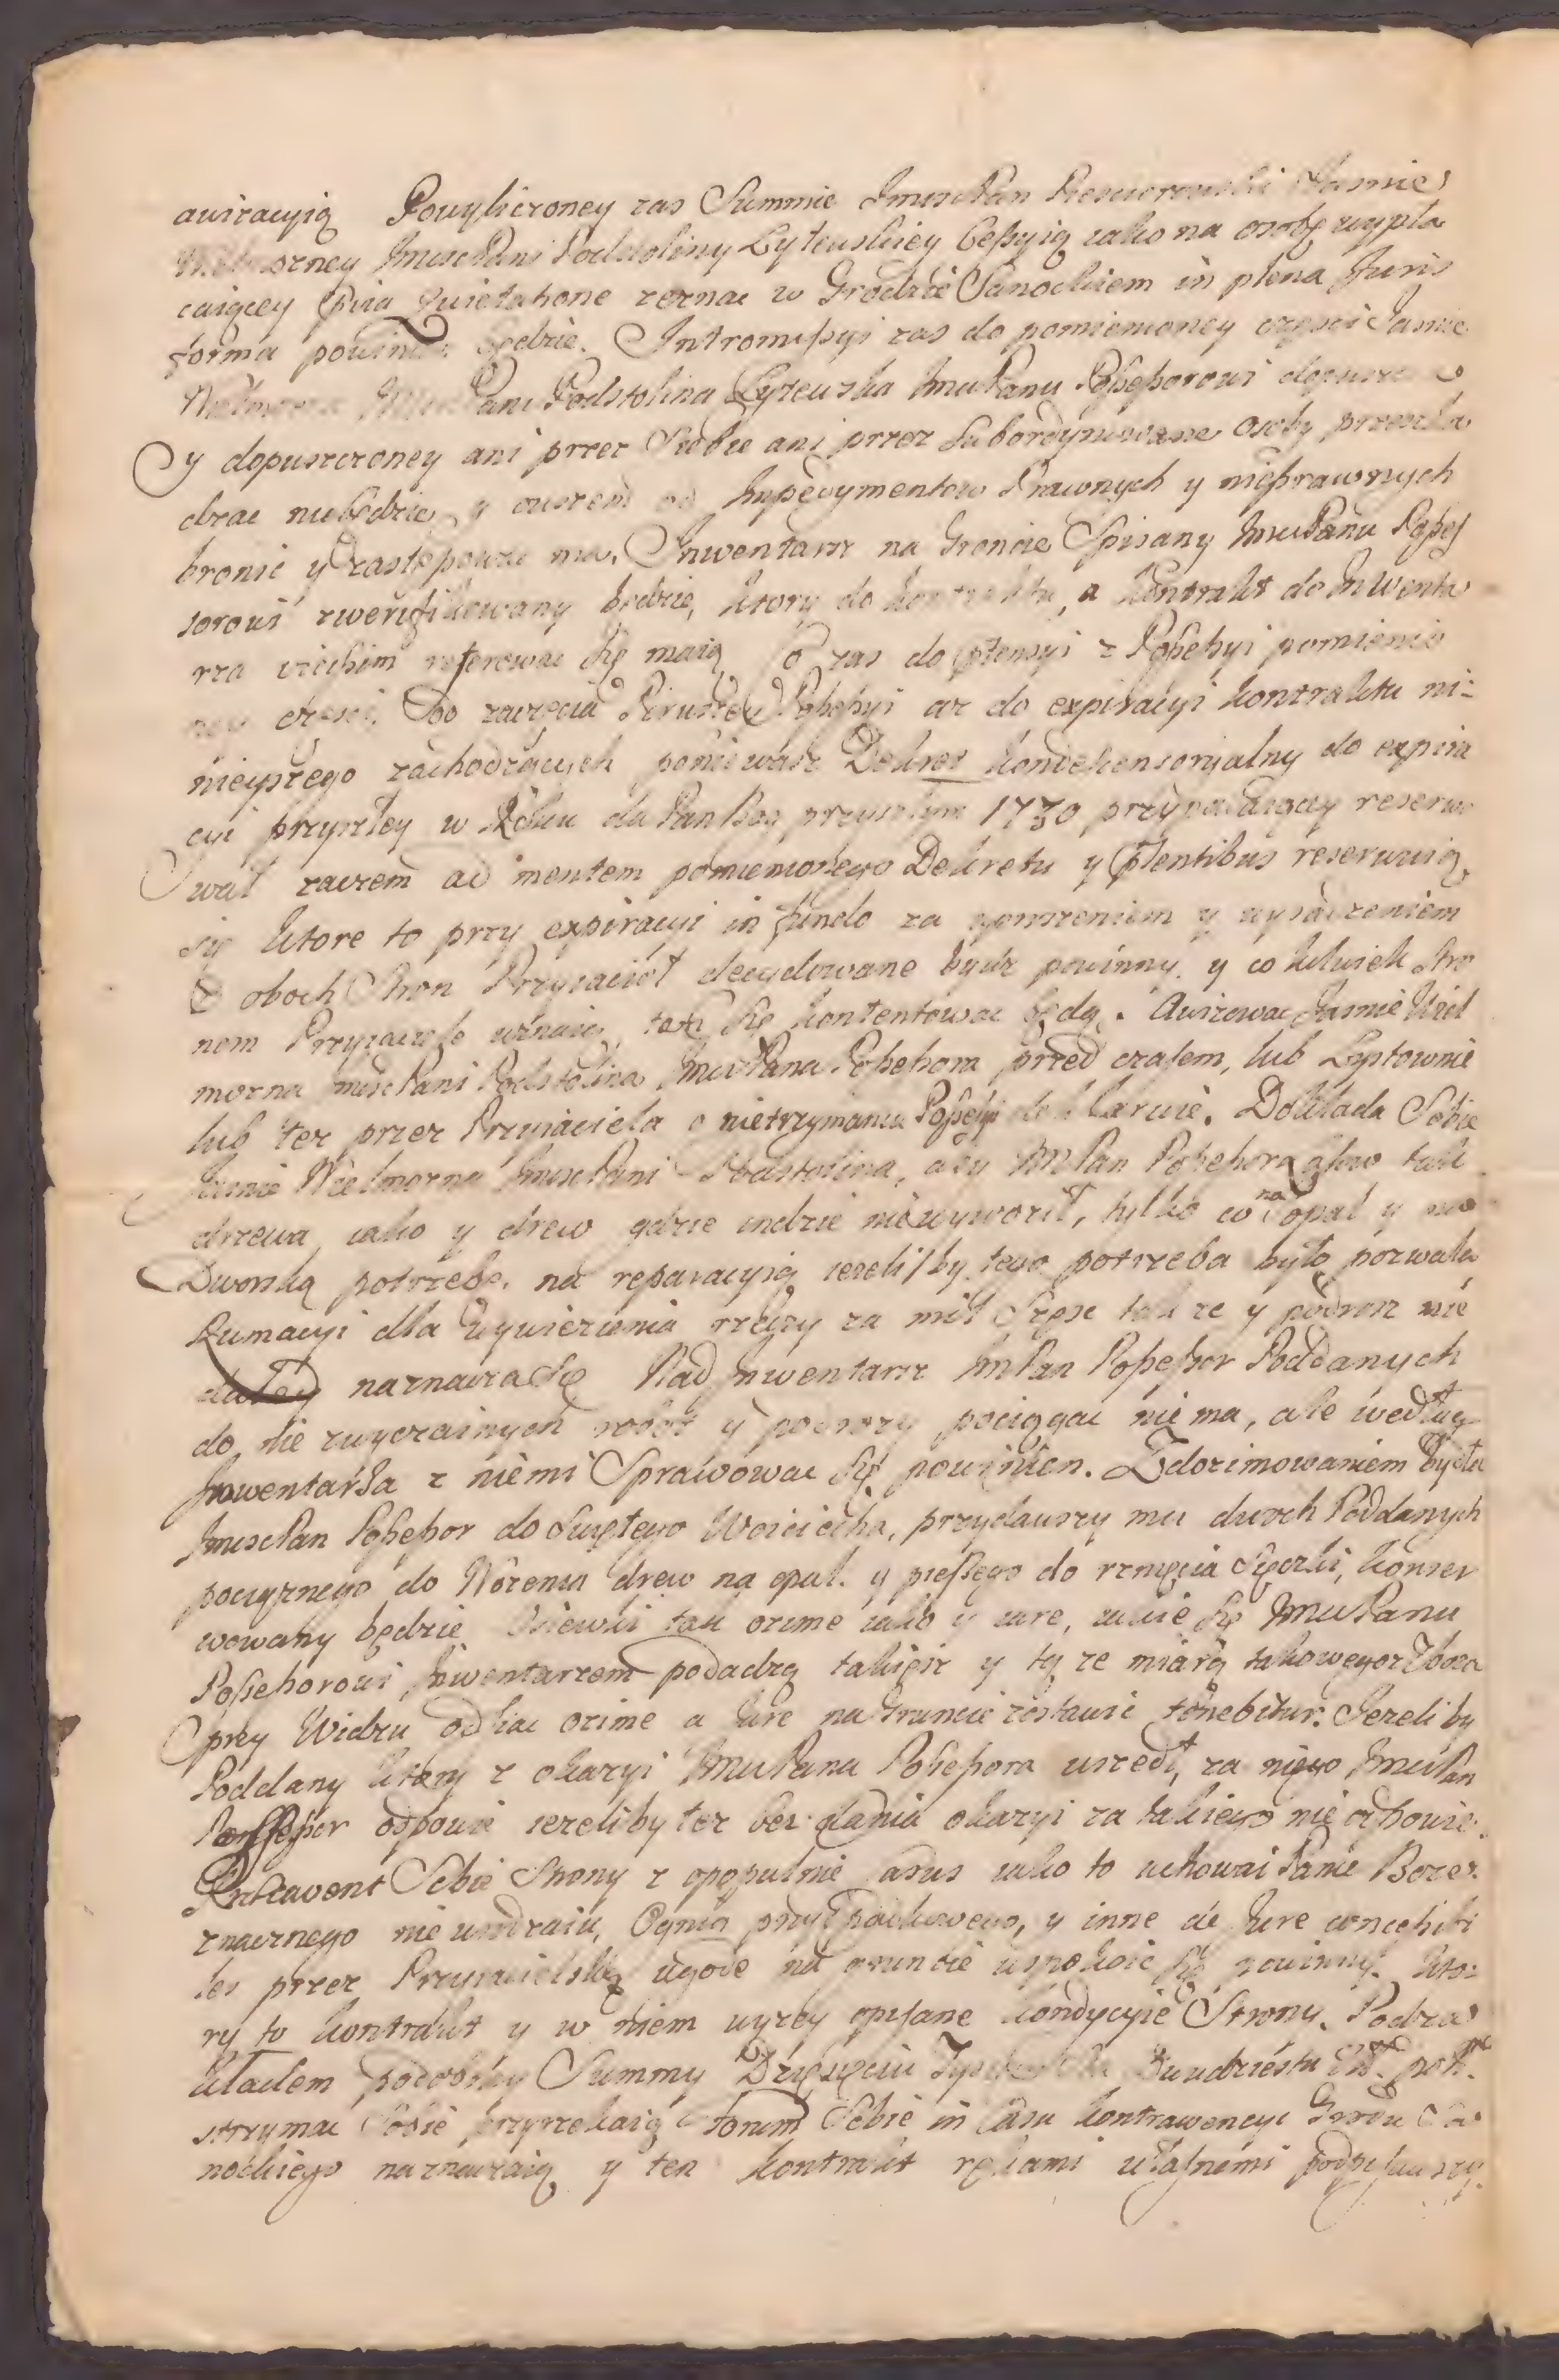 awizacyią Powyliczoney zas Summie Jmsc Pan Jasnie
Wielmozney Jmsc Pani Podstoliny Lytewskiey Ceßyią iako na osobę wypła
caiącey Quietatione zeznac w Grodzie Sanockiem in plena Juris
forma powinien będzie. Intromißyi zas do pomienioney częsci Jasnie
Wielmozna Jmsc Pani Podstolina Lytewska Jmsc Panu Poßeßorowi
y dopuszczoney ani przez Siebie ani przez Subordynowane osoby przeszka
dzac niebędzie, y owszem od Impedymentow Prawnych y nieprawnych
bronic y zastępowac ma. Inwentarz na Groncie Spisany Jmsc Panu Poßes
sorowi zweryfikowany będzie, ktory do kontraktu, a kontrakt do Inwenta
rza wiecznie referowac się maią Co zas do ptensyi z Poßeßyi pomienio
ney częsci, Od zaczęcia Pirwszey Poßeßyi az do expiracyi kontraktu ni=
nieyszego zachodzących poniewasz Dekret kondescensoryalny do expira
cyi przyszłey w Roku da Pan Bog przyszłym 1730 przypadaiącey reserwo
wał zaczem ad mentem pomienionego Dekretu y ptentibus reserwuią
się ktore to przy expiracyi in fundo za y wysadzeniem
z oboch Stron Przyiacioł decydowane bydz powinny. y co kolwiek Stro
nom Przyiaciele uznaią, tem się kontentowac będą. Awizowac Jasnie Wiel
mozna Jmsc Pani Podstolina Jmsc Pana Poßeßora przed czasem, lub Lystownie
lub tez przez Przyiaciela o nietrzymaniu Poßeßyi deklaruie. Dokłada Sobie
Jasnie Wielmozna Jmsc Pani Podstolina, aby JmPan Poßeßor tak
drzewa, iako y drew gdzie indzie niewywoził, tylko co na opał y na
Dworską potrzebę. na reparacyią iezeliby tego potrzeba było pozwala
Rumacyi dla Wywiezienia rzeczy za mil Szesc tak ze y podroz nie
daley naznacza się Nad Inwentarz JmPan Poßeßor Poddanych
do nie zwyczainych robot y podrozy pociągac nie ma, ale według
Inwentarza z niemi Sprawowac się powinien. Z dozimowaniem bydła
Jmsc Pan Poßeßor do Swiętego Woiciecha, przydawszy mu dwoch Poddanych
pociąznego do Wozenia drew na opał. y pießego do rznięcia Sieczki, konser
wowany będzie Osiewki tak ozime iako y iare, iakie się Jmsc Panu
Poßeßorowi Inwentarzem podadzą takięsz y tę ze miarą takowegosz Zboza
przy Widzu odsiac ozime a Jare na Gruncie zostawic tenebitur. Jezeliby
Poddany ktory z okazyi Jmsc Pana Poßeßora uszedł, za niego Jmsc Pan
Poßeßor odpowie iezeliby tez bez dania okazyi za takiego nie odpowie.
Sobie Strony iako to uchowai Panie Boze
znacznego nie urodzaiu, Ognia przypadkowego, y inne de Jure
przez Przyiacielską ugodę na gruncie uspokoic się powinny. Kto=
ry to kontrakt y w niem wyzey opisane kondycyie Strony. Pod za
kładem podobney Summy Dziesięciu Dwudziestu Zł. pols.
strzymac Sobie przyrzekaią Forum Sobie in Casu kontrawencyi Grodu Sa
nockiego naznaczaią y ten kontrakt rękami własnemi podpisuiący.